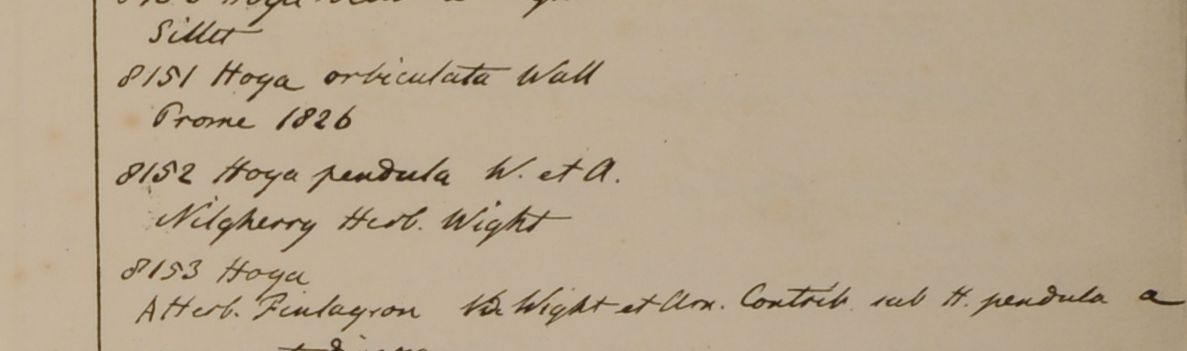 Hoya
Sillet
8151 Hoya orbiculata Wall
Prome 1826
8152 Hoya pendula W. et A.
Nilgherry Herb. Wight
8153 Hoya
Herb. Finlayson Vid. Wight et Arn. Contrib. sub H. pendula a